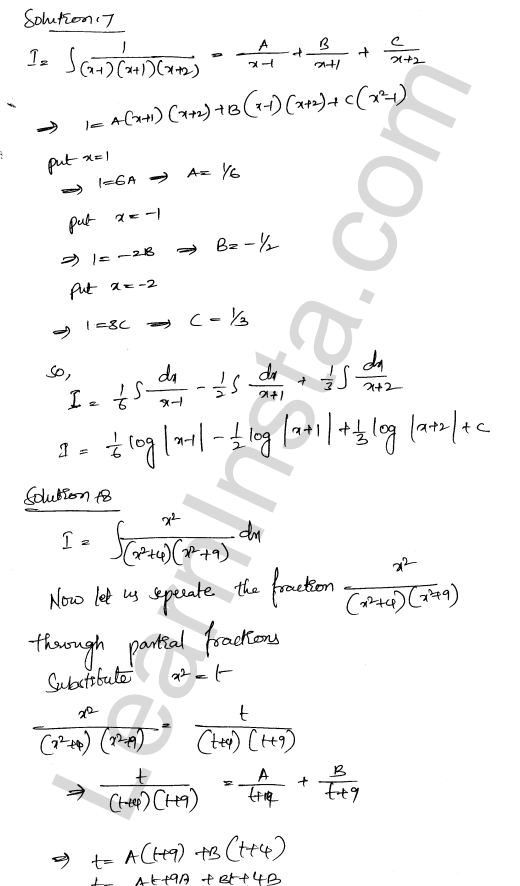 Solution:7
I = ∫ 1/((x-1)(x+1)(x+2)) = A/(x-1) + B/(x+1) + C/(x+2)
⇒ 1 = A(x+1)(x+2) + B(x-1)(x+2) + C(x²-1)
put x=1
⇒ 1=6A ⇒ A= 1/6
put x = -1
⇒ 1 = -2B ⇒ B = -1/2
Put x = -2
⇒ 1 = 3C ⇒ C = 1/3
So,
I = 1/6 ∫ dx/(x-1) - 1/2 ∫ dx/(x+1) + 1/3 ∫ dx/(x+2)
I = 1/6 log|x-1| - 1/2 log|x+1| + 1/3 log|x+2| + c
Solution:8
I = ∫ x²/((x²+4)(x²+9)) dx
Now let us seperate the fraction x²/((x²+4)(x²+9))
through partial fractions
Substitute x² = t
x²/((x²+4)(x²+9)) = t/((t+4)(t+9))
⇒ t/((t+4)(t+9)) = A/(t+4) + B/(t+9)
⇒ t = A(t+9) + B(t+4)
t = At+9A + Bt+4B
LearnInsta.com